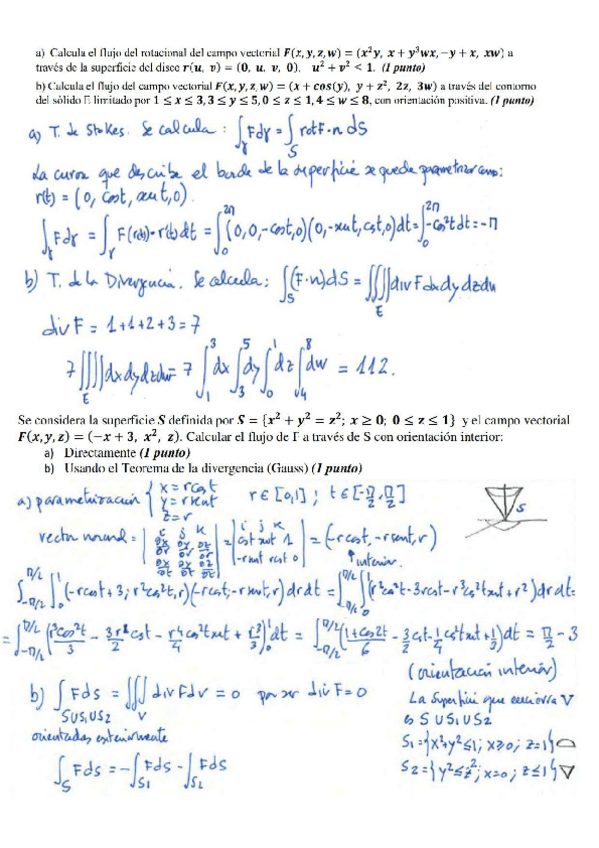 a) Calcula el flujo del rotacional del campo vectorial F(x, y, z, w) = (x²y, x + y³wx, −y + x, xw) a
través de la superficie del disco r(u, v) = (0, u, v, 0), u² + v² < 1. (1 punto)
b) Calcula el flujo del campo vectorial F(x, y, z, w) = (x + cos(y), y + z², 2z, 3w) a través del contorno
del sólido E limitado por 1 ≤ x ≤ 3, 3 ≤ y ≤ 5, 0 ≤ z ≤ 1, 4 ≤ w ≤ 8, con orientación positiva. (1 punto)
a) T. de Stokes. Se calcula : ∫γ Fdγ = ∫S rotF·n dS
La curva que describe el borde de la superficie se puede parametrizar como:
r(t) = (0, cost, sent, 0).
∫γ Fdγ = ∫γ F(r(t))·r'(t)dt = ∫₀^2π (0,0,-cost,0)(0,-sent,cost,0)dt = ∫₀^2π -cos²t dt = -π
b) T. de la Divergencia. Se calcula: ∫S (F·n)dS = ∫∫∫∫E div F dxdydzdw
div F = 1+1+2+3 = 7
7 ∫∫∫∫E dxdydzdw = 7 ∫₁³dx ∫₃⁵dy ∫₀¹dz ∫₄⁸dw = 112.
Se considera la superficie S definida por S = {x² + y² = z²; x ≥ 0; 0 ≤ z ≤ 1} y el campo vectorial
F(x, y, z) = (−x + 3, x², z). Calcular el flujo de F a través de S con orientación interior:
a) Directamente (1 punto)
b) Usando el Teorema de la divergencia (Gauss) (1 punto)
a) parametrización { x = rcost y = rsent z = r r ∈ [0,1] ; t ∈ [-π/2, π/2] S
vector normal = | i j k ∂x/∂r ∂y/∂r ∂z/∂r ∂x/∂t ∂y/∂t ∂z/∂t | = | i j k cost sent 1 -rsent rcost 0 | = (-rcost, -rsent, r)
↑ interior.
∫_{-π/2}^{π/2} ∫₀¹ (-rcost+3, r²cos²t, r)(-rcost, -rsent, r)drdt = ∫_{-π/2}^{π/2} ∫₀¹ (r²cos²t - 3rcost - r³cos²t sent + r²)drdt =
= ∫_{-π/2}^{π/2} (r³cos²t/3 - 3r²/2 cost - r⁴/4 cos²t sent + r³/3)₀¹ dt = ∫_{-π/2}^{π/2} (1+cos2t/6 - 3/2 cost - 1/4 cos²t sent + 1/3)dt = π/2 - 3
(orientación interior)
b) ∫_{S∪S₁∪S₂} Fds = ∫∫∫V div F dv = 0 por ser div F = 0
orientadas exteriormente
∫S Fds = -∫S₁ Fds - ∫S₂ Fds
La superficie que encierra V
es S∪S₁∪S₂
S₁ = {x²+y² ≤ 1; x ≥ 0; z = 1}
S₂ = {y² ≤ z²; x = 0; z ≤ 1}